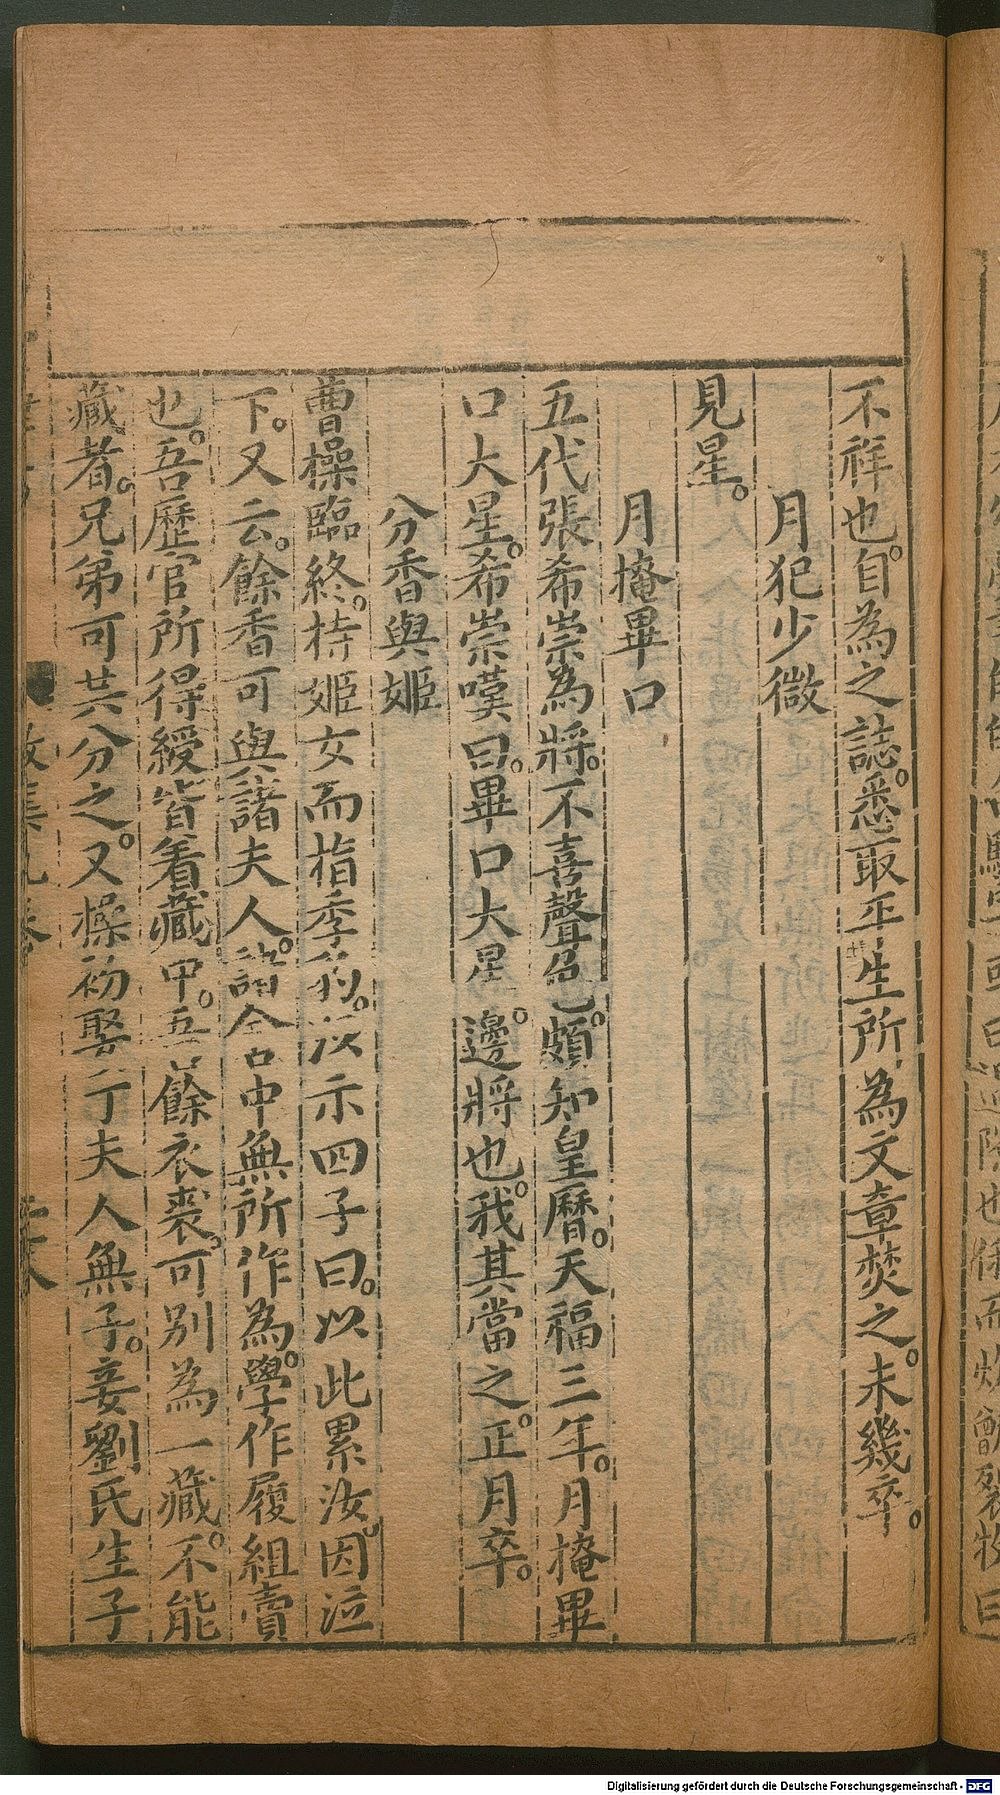 不祥也。自為之誌。悉取平生所為文章焚之。未幾卒。
月犯少微
見星。
月掩畢口
五代張希崇為將。不喜聲色。頗知皇曆。天福三年。月掩畢
口大星。希崇嘆曰。畢口大星。邊將也。我其當之。正月卒。
分香與姬
曹操臨終。持姬女而指季豹。以示四子曰。以此累汝。因泣
下。又云。餘香可與諸夫人。諸舍中無所作為。學作履組賣
也。吾歷官所得綬。皆着藏中。吾餘衣裘。可別為一藏。不能
藏者。兄弟可共分之。又操初娶丁夫人無子。妾劉氏生子
Digitalisierung gefördert durch die Deutsche Forschungsgemeinschaft - DFG